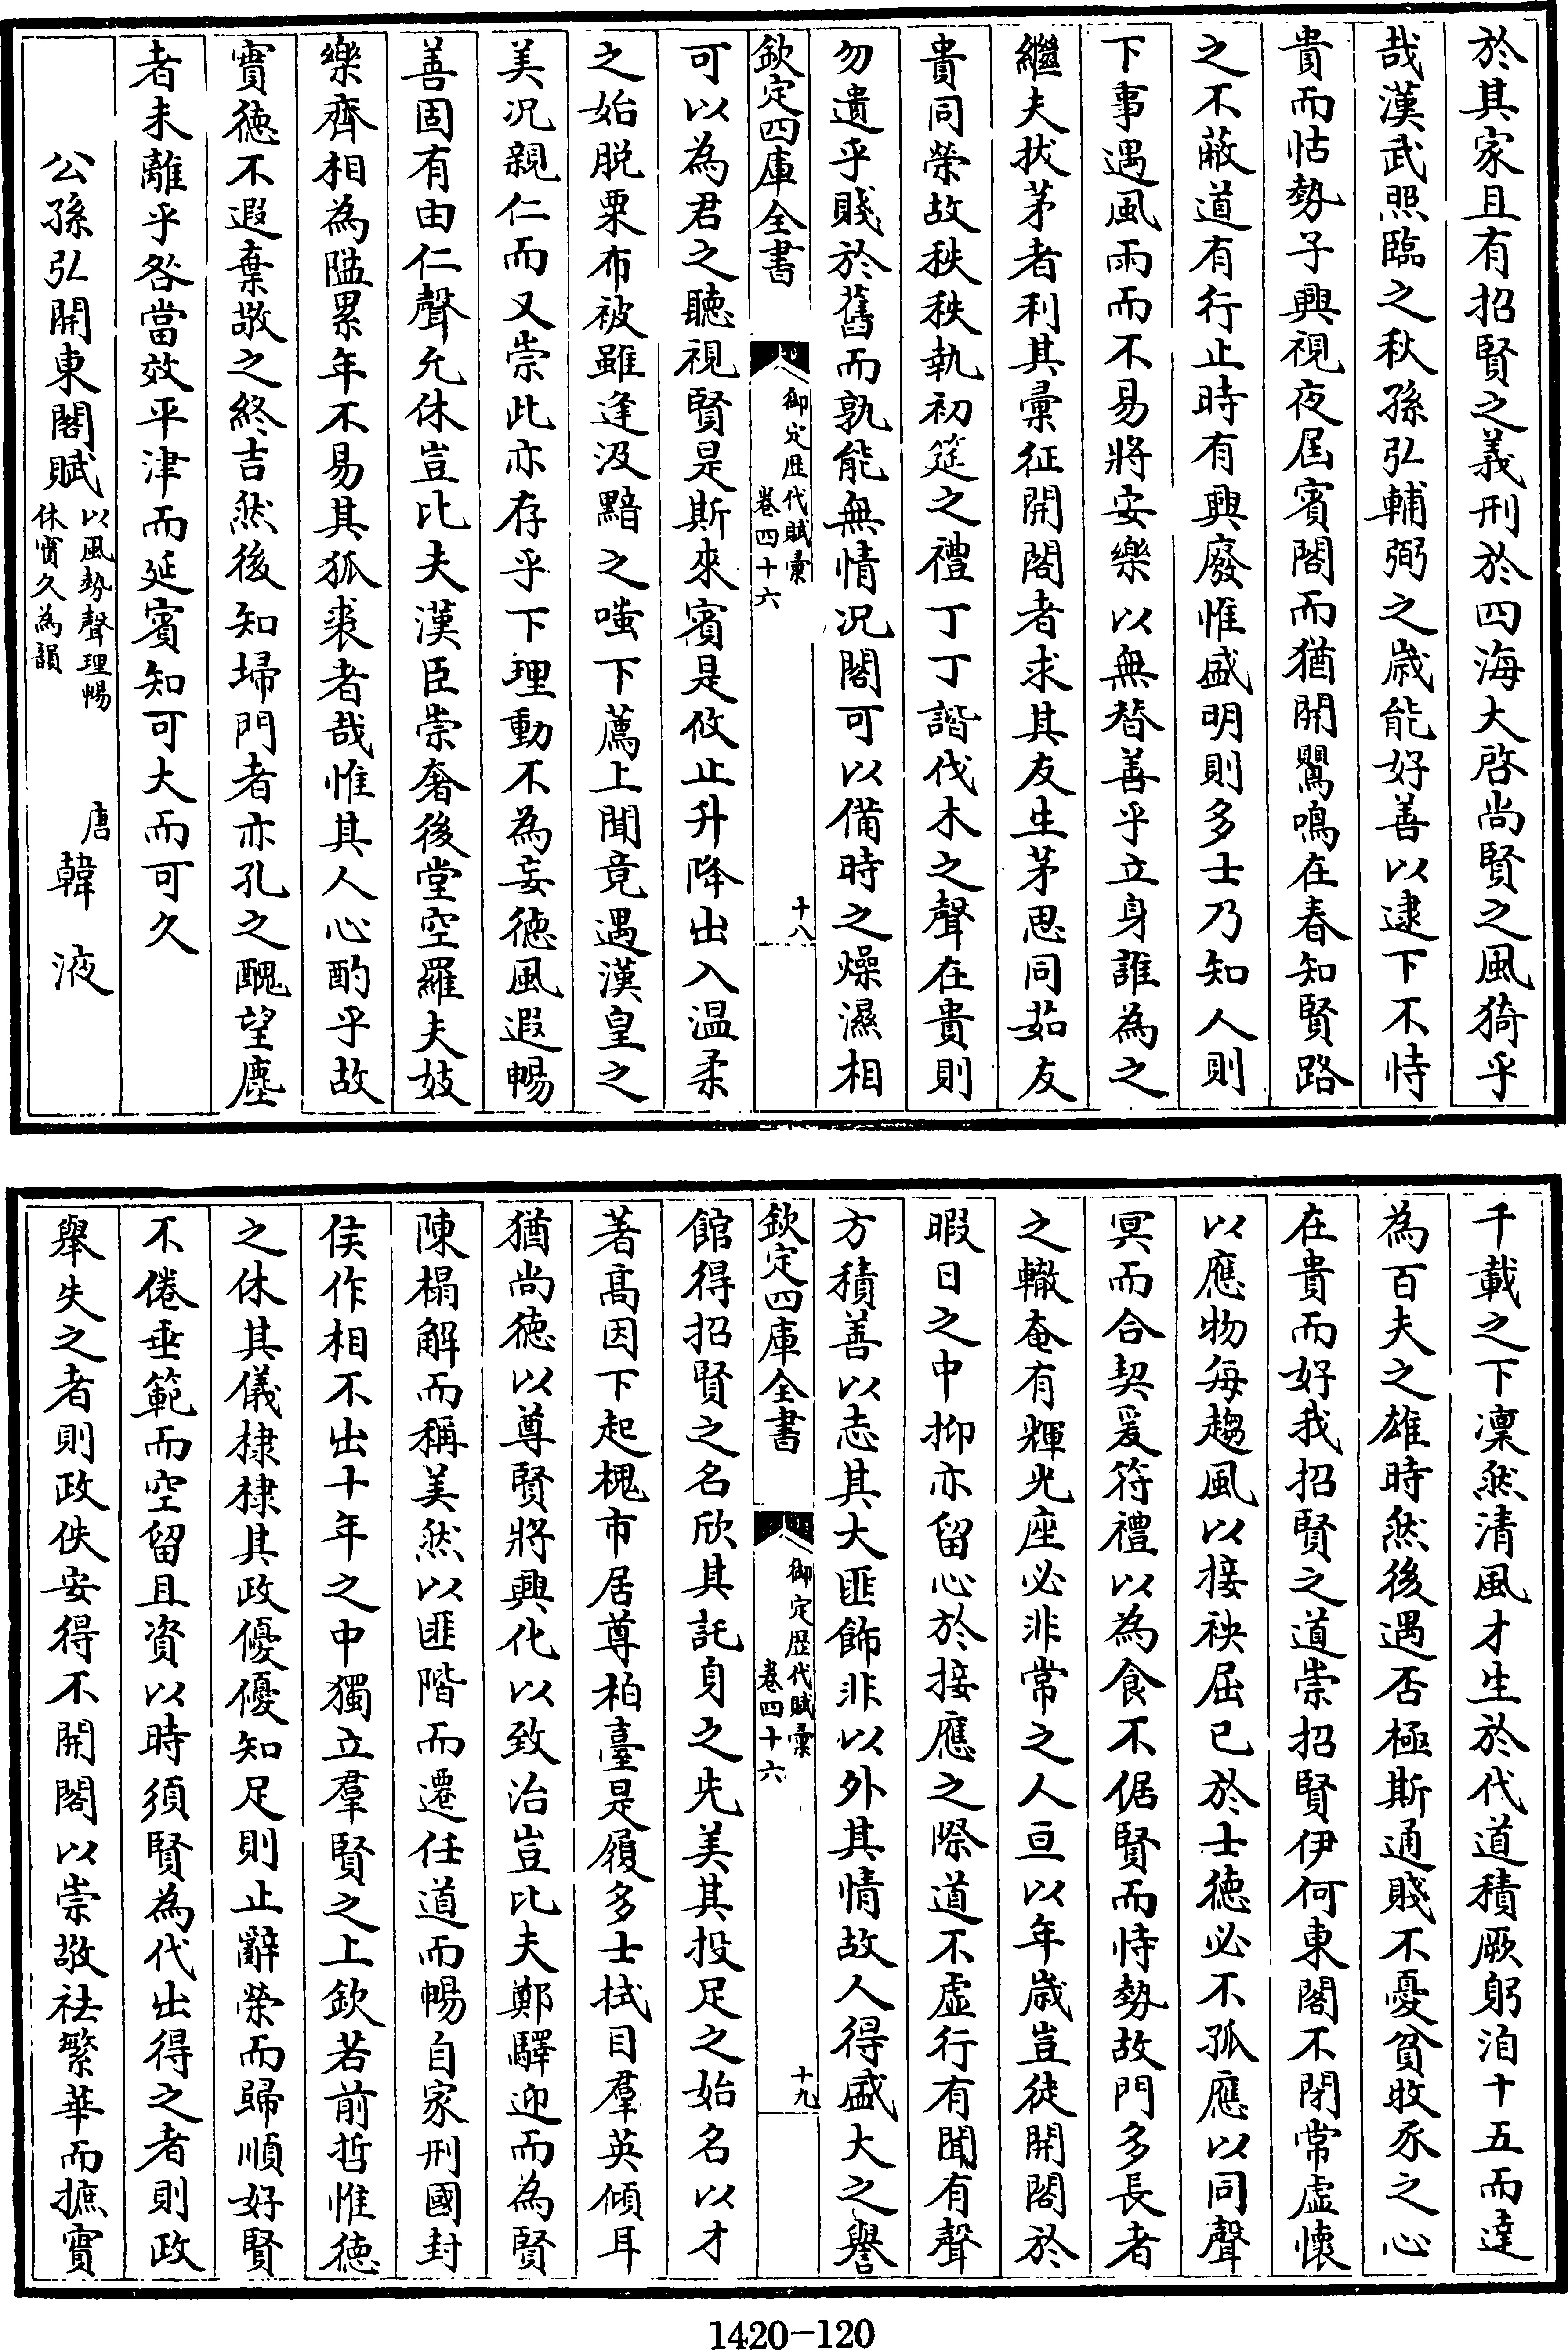 於其家且有招賢之義刑於四海大啓尚賢之風猗乎
哉漢武照臨之秋孫弘輔弼之歲能好善以逮下不恃
貴而怙勢子興視夜屆賓閤而猶開鸎鳴在春知賢路
之不蔽道有行止時有興廢惟盛明則多士乃知人則
下事遇風雨而不易將安樂以無替善乎立身誰為之
繼夫拔茅者利其彚征開閤者求其友生茅思同茹友
貴同榮故秩秩執初筵之禮丁丁諧伐木之聲在貴則
勿遺乎賤於舊而孰能無情況閤可以備時之燥濕相
欽定四庫全書
御定歴代賦彚
卷四十六
十八
可以為君之聽視賢是斯來賓是攸止升降出入温柔
之始脱粟布被雖逢汲黯之嗤下薦上聞竟遇漢皇之
美況親仁而又崇此亦存乎下理動不為妄德風遐暢
善固有由仁聲允休豈比夫漢臣崇奢後堂空羅夫妓
樂齊相為隘累年不易其狐裘者哉惟其人心酌乎故
實德不遐棄敬之終吉然後知埽門者亦孔之醜望塵
者未離乎咎當效平津而延賓知可大而可久
公孫弘開東閤賦
以風勢聲理暢
休實久為韻
唐
韓液
千載之下凛然清風才生於代道積厥躬洎十五而達
為百夫之雄時然後遇否極斯通賤不憂貧牧豕之心
在貴而好我招賢之道崇招賢伊何東閤不閉常虚懷
以應物每趨風以接袂屈已於士德必不孤應以同聲
冥而合契爰符禮以為食不倨賢而恃勢故門多長者
之轍奄有輝光座必非常之人亘以年歲豈徒開閤於
暇日之中抑亦留心於接應之際道不虚行有聞有聲
方積善以志其大匪飾非以外其情故人得盛大之譽
欽定四庫全書
御定歴代賦彚
卷四十六
十九
館得招賢之名欣其託身之先美其投足之始名以才
著高因下起槐市居尊柏臺是履多士拭目羣英傾耳
猶尚德以尊賢將興化以致治豈比夫鄭驛迎而為賢
陳榻解而稱美然以匪階而遷任道而暢自家刑國封
侯作相不出十年之中獨立羣賢之上欽若前哲惟德
之休其儀棣棣其政優優知足則止辭榮而歸順好賢
不倦垂範而空留且資以時須賢為代出得之者則政
舉失之者則政佚安得不開閤以崇敬祛繁華而摭實
1420-120